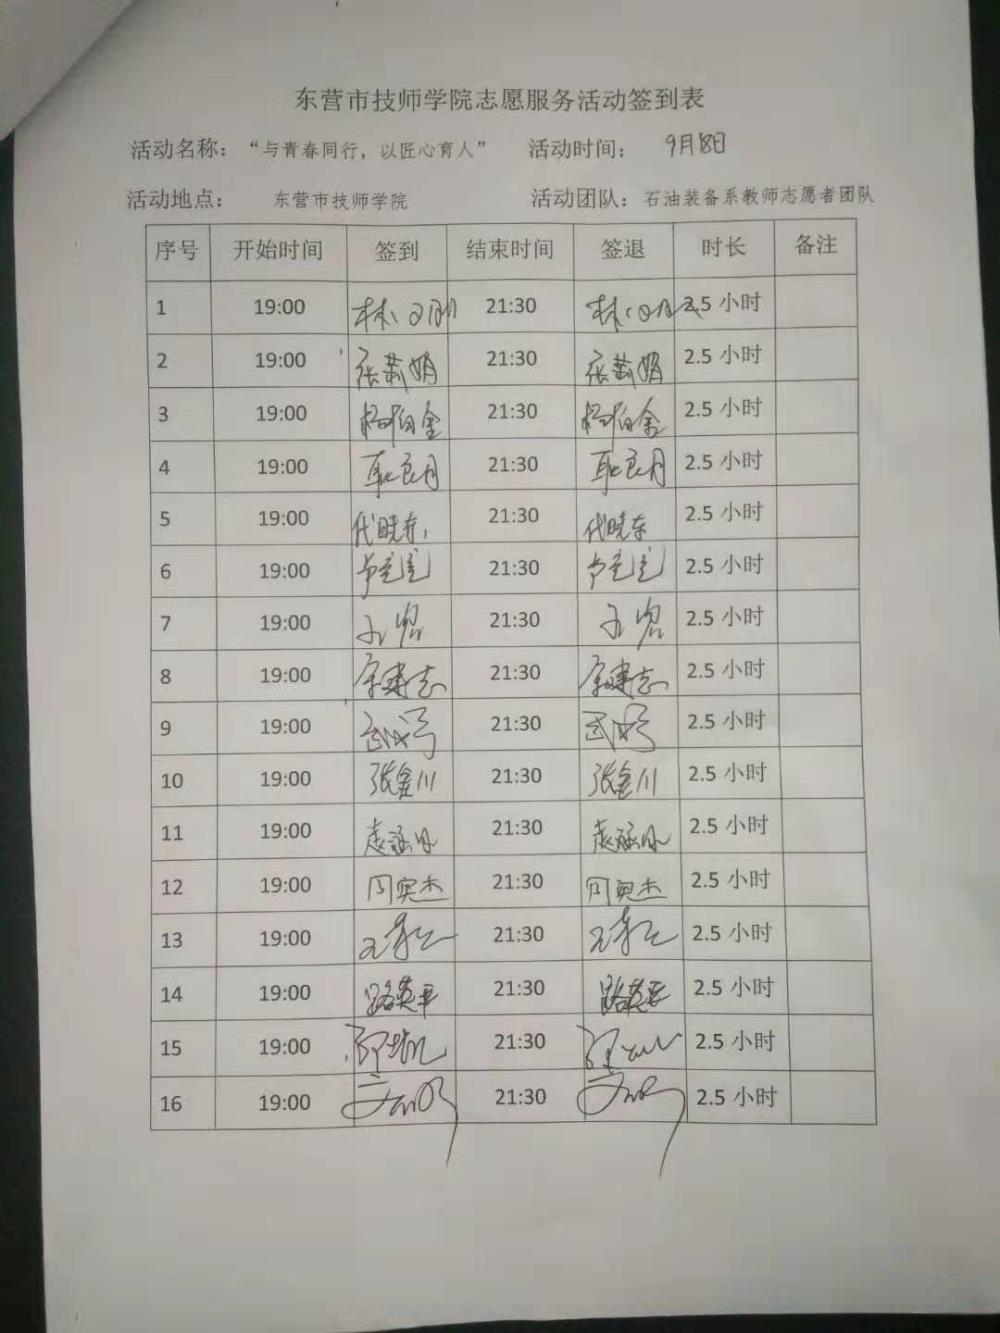 东营市技师学院志愿服务活动签到表
活动名称：“与青春同行，以匠心育人” 活动时间： 9月18日
活动地点： 东营市技师学院 活动团队：石油装备系教师志愿者团队
序号 开始时间 签到 结束时间 签退 时长 备注
1 19:00 21:30 2.5 小时
2 19:00 张莉娟 21:30 张莉娟 2.5 小时
3 19:00 杨伯金 21:30 2.5 小时
4 19:00 耿良月 21:30 耿良月 2.5 小时
5 19:00 代晓东 21:30 代晓东 2.5 小时
6 19:00 21:30 2.5 小时
7 19:00 21:30 2.5 小时
8 19:00 21:30 2.5 小时
9 19:00 21:30 2.5 小时
10 19:00 张鑫川 21:30 张鑫川 2.5 小时
11 19:00 21:30 2.5 小时
12 19:00 闫奥杰 21:30 闫奥杰 2.5 小时
13 19:00 21:30 2.5 小时
14 19:00 路英平 21:30 路英平 2.5 小时
15 19:00 21:30 2.5 小时
16 19:00 21:30 2.5 小时